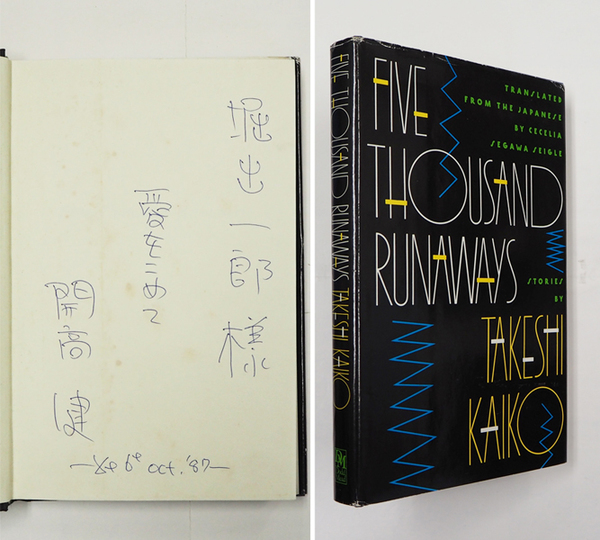 堀出一郎様
愛をこめて
開高健
6th oct. '87
FIVE THOUSAND RUNAWAYS TAKESHI KAIKO
FIVE
THOUSAND
RUNAWAYS
TRANSLATED
FROM THE JAPANESE
BY CECELIA
SEGAWA SEIGLE
STORIES
BY
TAKESHI
KAIKO